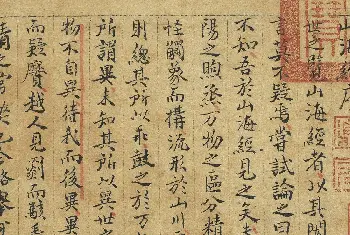 山海經序
世之覽山海經者以其閎
言莫不疑焉嘗試論之曰
不知吾於山海經見之矣夫
陽之昫蒸万物之區分精
怪觸象而構流形於山川
則總其所以乖鼓之於万
所謂異未知其所以異世之
物不自異待我而後異異
而疑黂越人見罽而駭毳